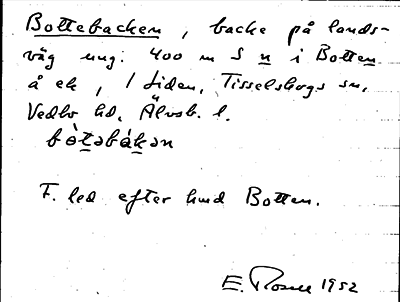 Bottebacken, backe på lands-
väg ung. 400 m S n i Botten
å ek, 1 Liden, Tisselskogs sn,
Vedbo hd, Älvsb. l.
bòtəbákən
F. led efter hmd Botten.
E. Rosell 1952